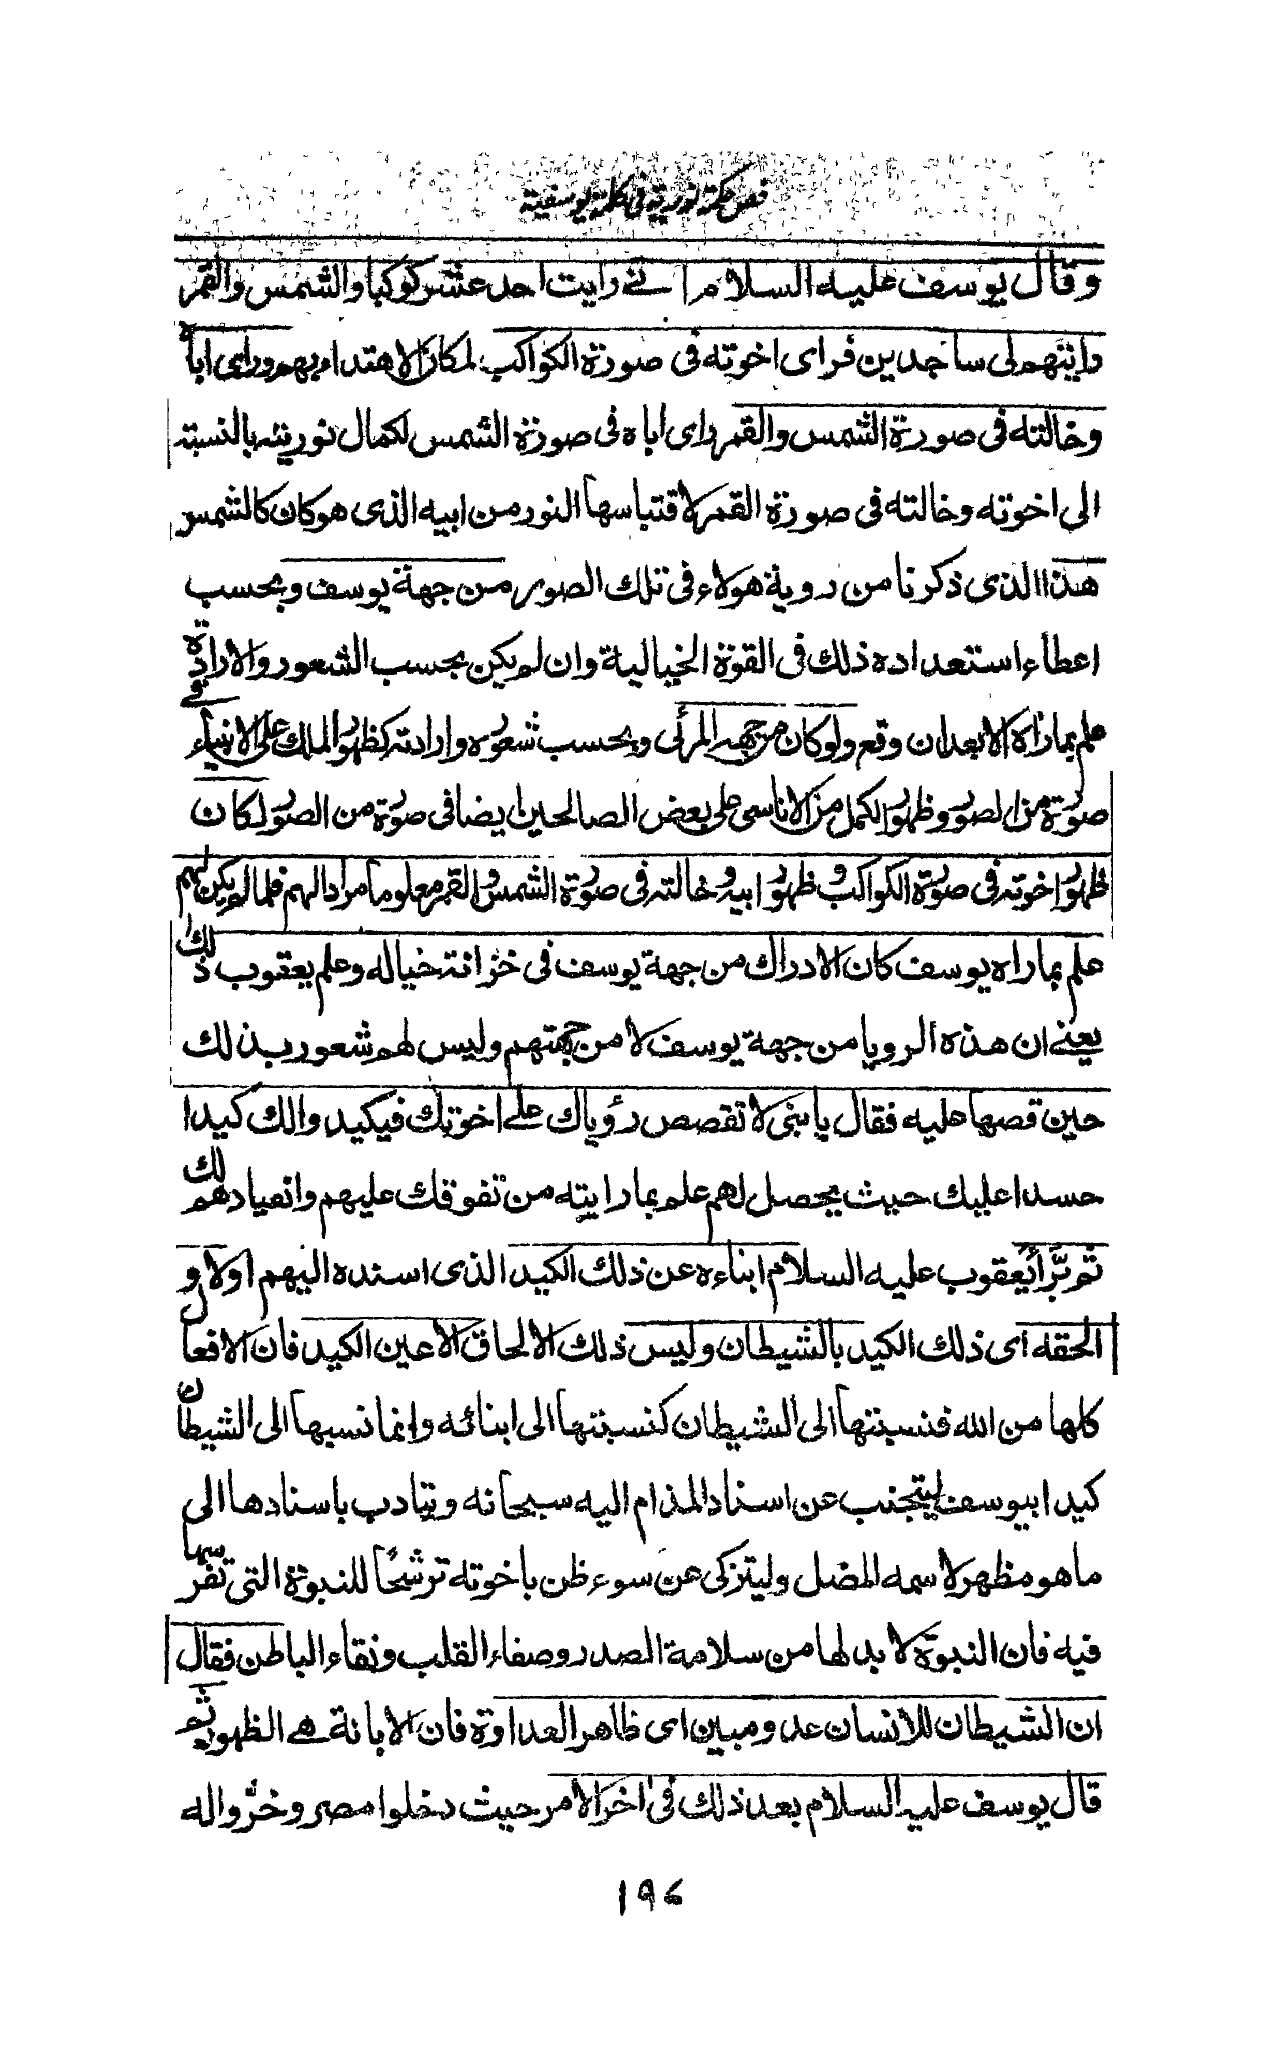 فص حكمة نورية فى كلمة يوسفية
وقال يوسف عليه السلام انے رايت احد عشر كوكبا والشمس والقمر
رايتهم لى ساجدين فراى اخوته فى صورة الكواكب لمكان الاهتداء بهم وراى اباه
وخالته فى صورة الشمس والقمر راى اباه فى صورة الشمس لكمال نوريته بالنسبة
الى اخوته وخالته فى صورة القمر لاقتباسها النور من ابيه الذى هو كان كالشمس
هذا الذى ذكرنا من روية هولاء فى تلك الصور من جهة يوسف وبحسب
اعطاء استعداده ذلك فى القوة الخيالية وان لم يكن بحسب الشعور والارادة
علم بما راٰه الا بعد ان وقع ولو كان من جهة المرئى وبحسب شعوره وارادته كظهور الملك على الانبياء فے
صورة من الصور وظهور الكمل من الاناسى على بعض الصالحين ايضا فى صورة من الصور لكان
ظهور اخوته فى صورة الكواكب وظهور ابيه وخالته فى صورة الشمس والقمر معلوما مرادا لهم فلما لم يكن لهم
علم بما راه يوسف كان الادراك من جهة يوسف فى خزانة خياله وعلم يعقوب ذلك
يعنے ان هذه الرويا من جهة يوسف لا من جهتهم وليس لهم شعور بذلك
حين قصها عليه فقال يا بنى لا تقصص رؤياك علے اخوتك فيكيدوا لك كيدا
حسدا عليك حيث يحصل لهم علم بما رايته من تفوقك عليهم وانقيادهم لك
ثم برّأ يعقوب عليه السلام ابناءه عن ذلك الكيد الذى اسنده اليهم اولا و
الحقه اى ذلك الكيد بالشيطان وليس ذلك الالحاق الا عين الكيد فان الافعال
كلها من الله فنسبتها الى الشيطان كنسبتها الى ابنائه وانما نسبها الى الشيطان
كيدا بيوسف ليتجنب عن اسناد المذام اليه سبحانه ويتادب باسنادها الى
ما هو مظهر لاسمه المضل وليتزكى عن سوء ظن باخوته ترشحًا للنبوة التى تفرسها
فيه فان النبوة لا بد لها من سلامة الصدر وصفاء القلب ونقاء الباطن فقال
ان الشيطان للانسان عدو مبين اى ظاهر العداوة فان الابانة هے الظهور ثم
قال يوسف عليه السلام بعد ذلك فى اخر الامر حيث دخلوا مصر وخرّوا له
۱۹۶